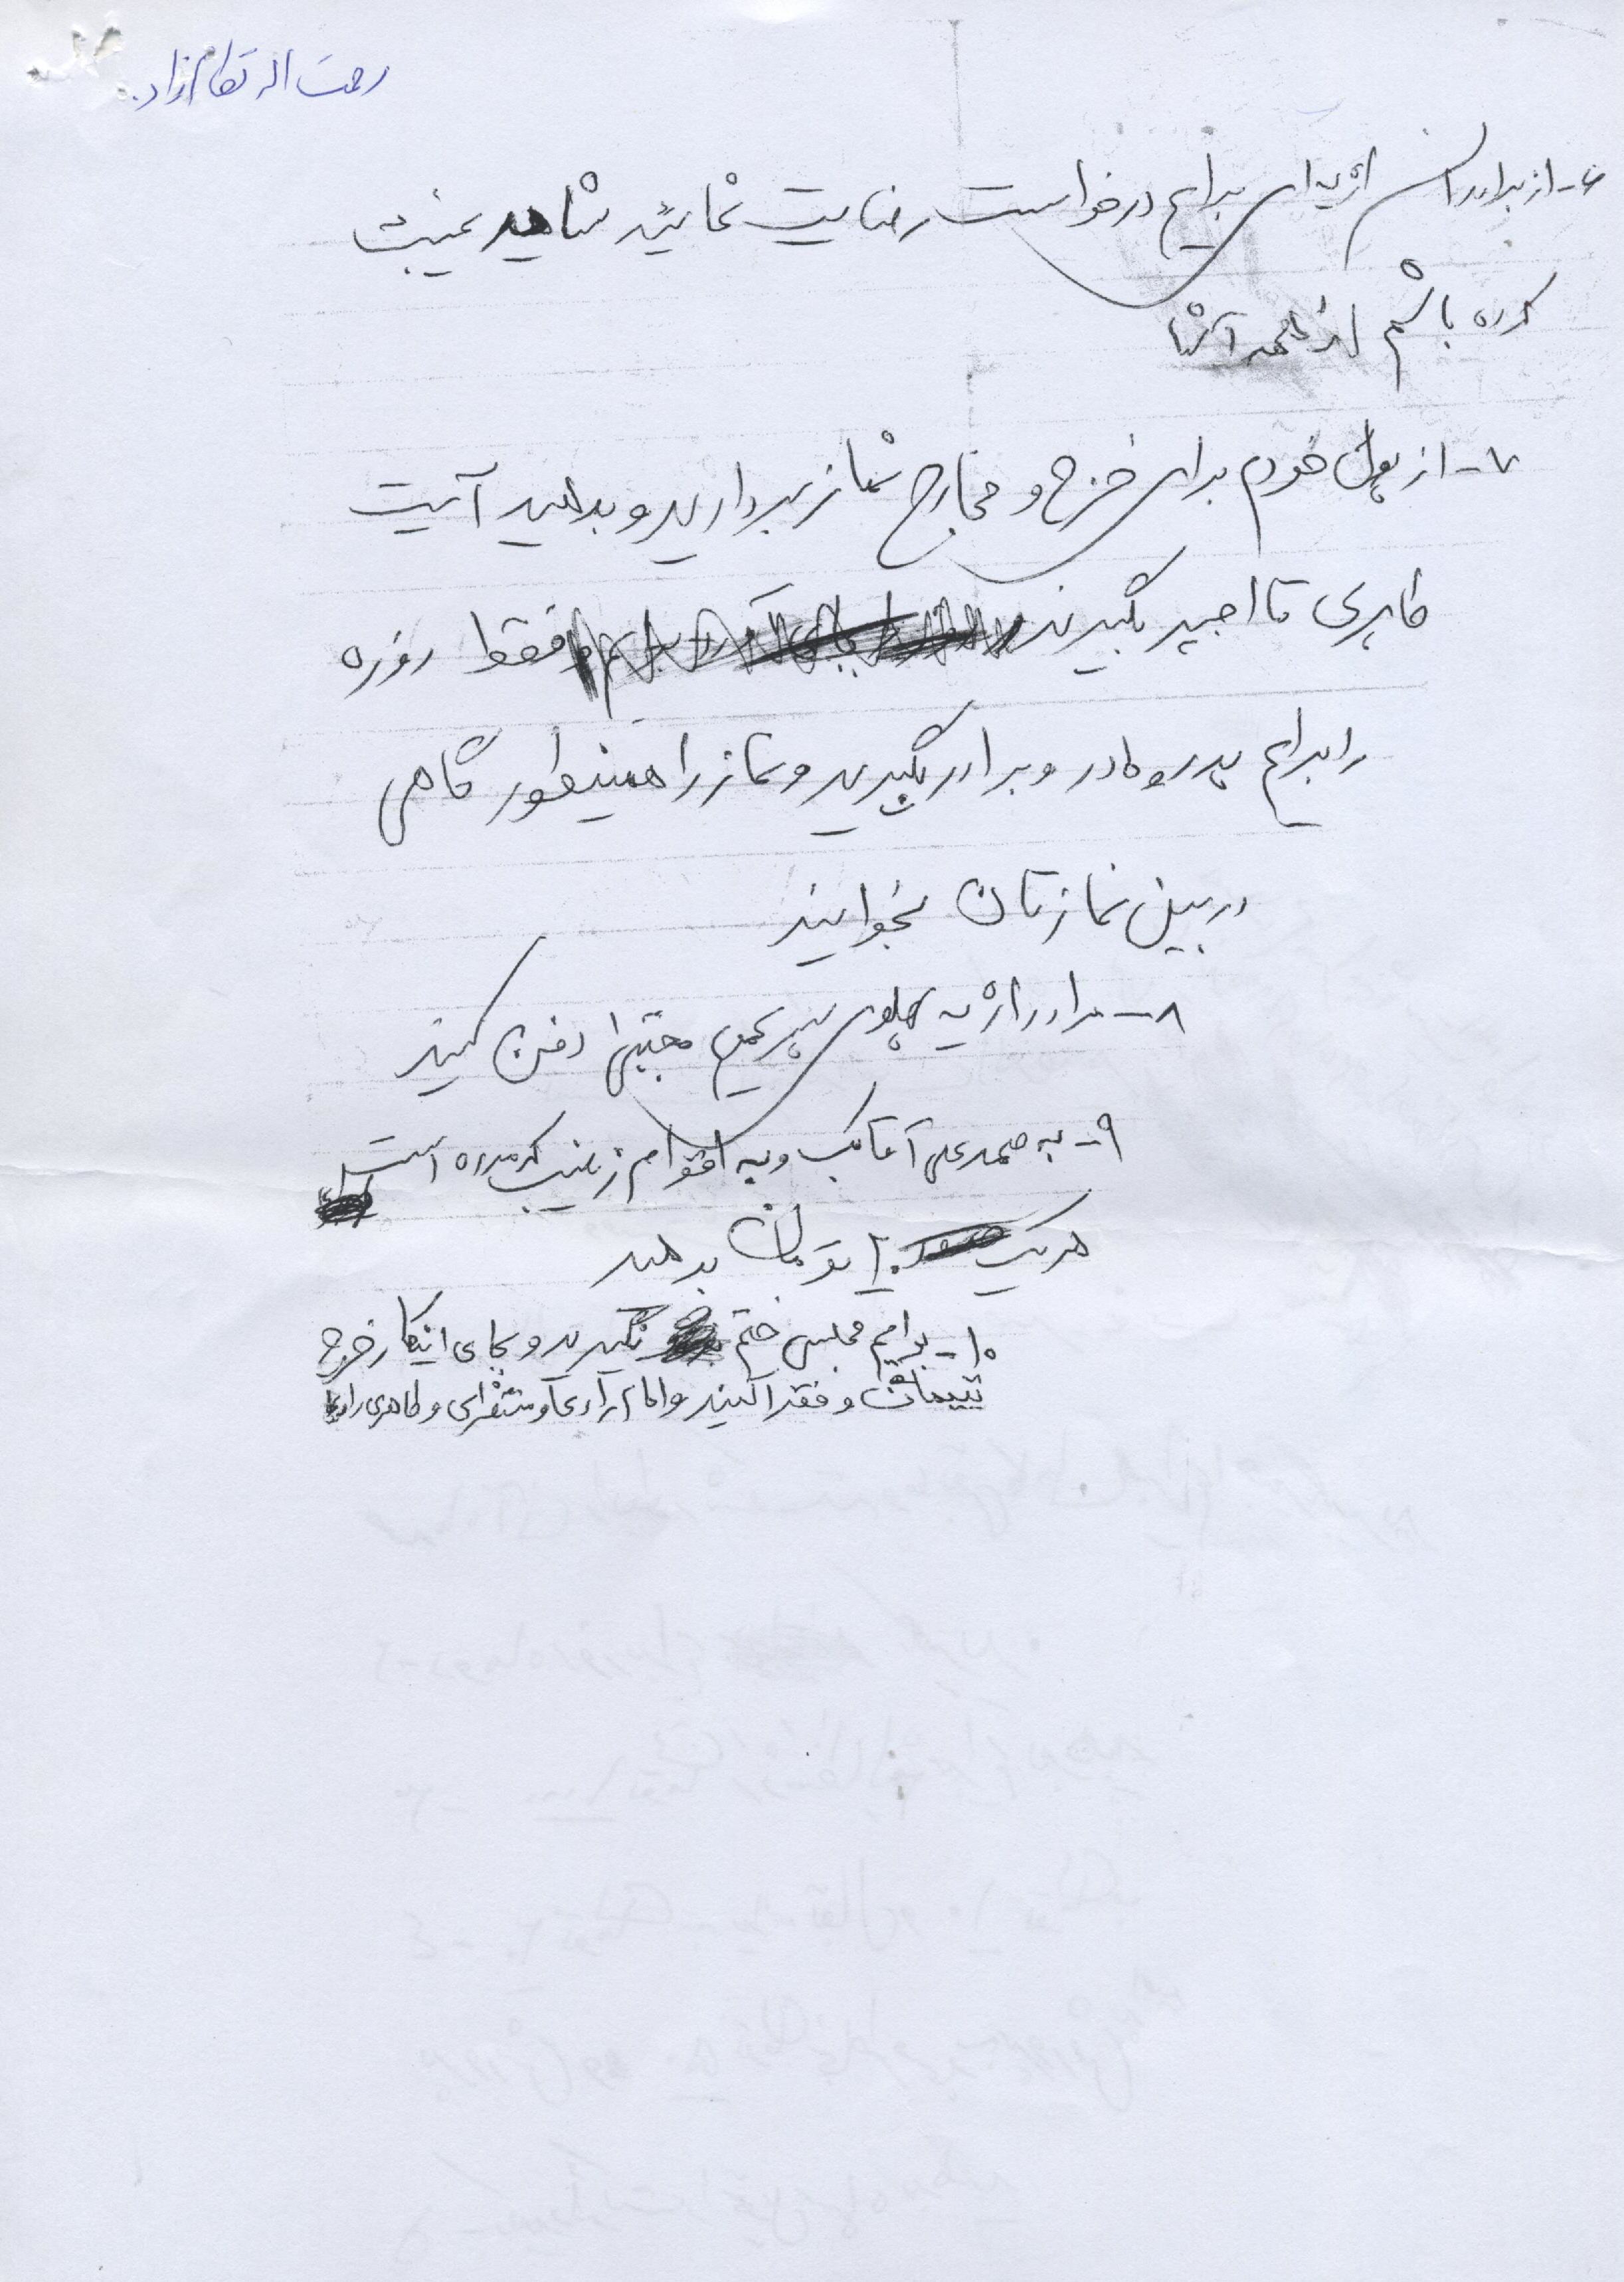 رحمت اله
۶- از برادران اژیه ای برایم درخواست رضایت نمائید شاهد غیبت
کرده باشم از همه آنها
۷- از پول خودم برای خرج و مخارج نماز بردارید و بدهید آیت
طاهری تا اجیر بگیرند فقط روزه
را برایم پدر و مادر و برادر بگیرید و نماز را همینطور گاهی
در بین نمازتان بخوانید
۸- مرا در اژیه پهلوی پسر عمویم مجتبی دفن کنید
۹- به محمد علی آقابابک و به اقوام زینب که مرده است
هریک ۱۰ تومان بدهید
۱۰- برایم مجلس ختم نگیرید و بجای اینکار خرج
یتیمان و فقرا کنید و امام را دعا و منتظری و طاهری را دعا